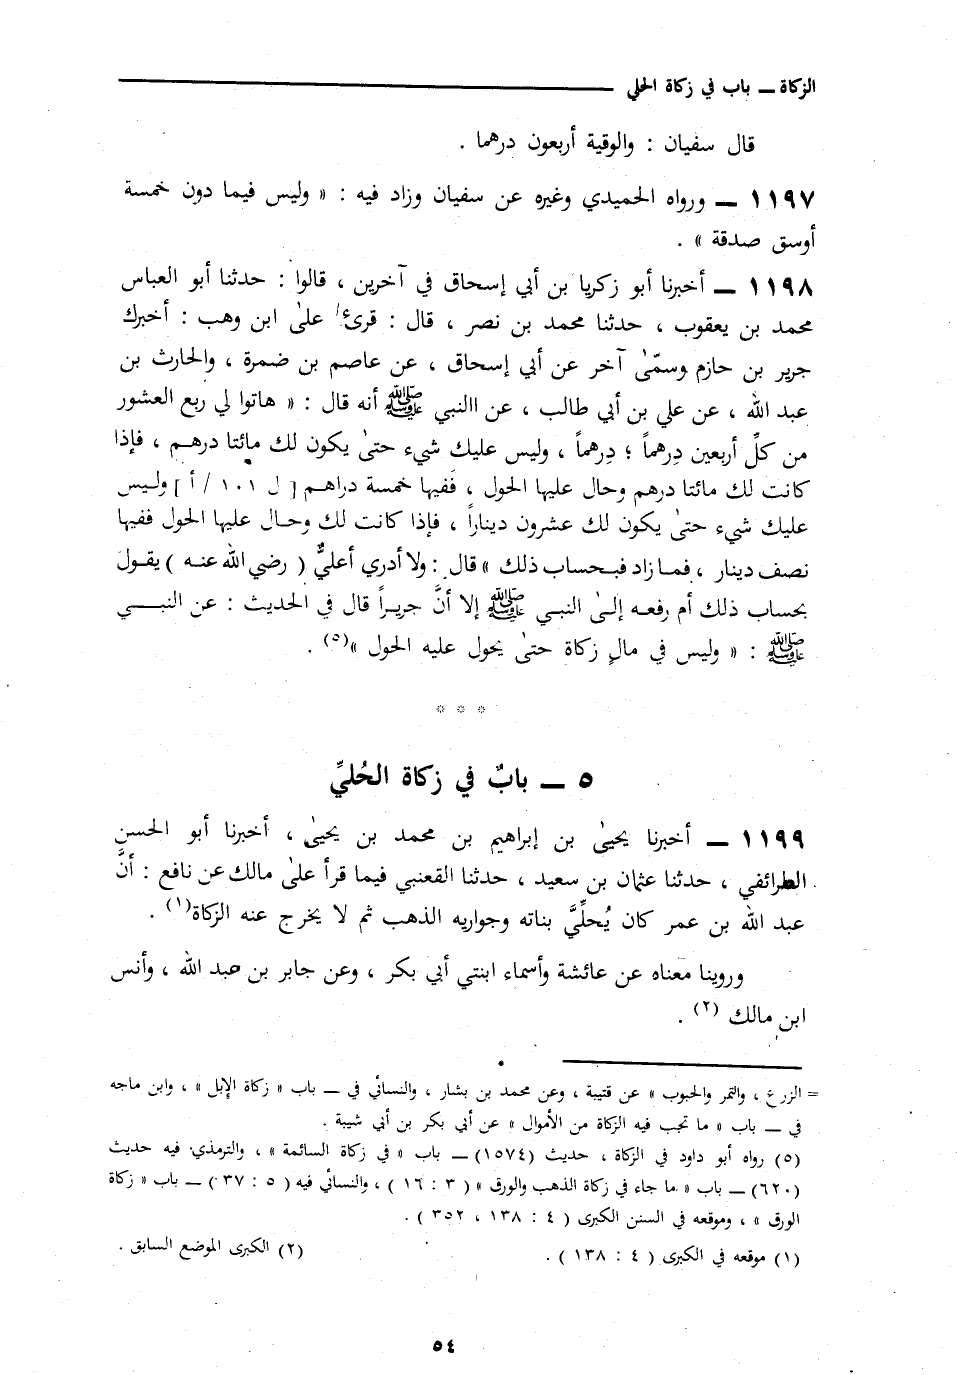 الزكاة ــ باب في زكاة الحلي
قال سفيان : والوقية أربعون درهما .
١١٩٧ ــ ورواه الحميدي وغيره عن سفيان وزاد فيه : « وليس فيما دون خمسة
أوسق صدقة » .
١١٩٨ ــ أخبرنا أبو زكريا بن أبي إسحاق في آخرين ، قالوا : حدثنا أبو العباس
محمد بن يعقوب ، حدثنا محمد بن نصر ، قال : قرئ علىٰ ابن وهب : أخبرك
جرير بن حازم وسمّىٰ آخر عن أبي إسحاق ، عن عاصم بن ضمرة ، والحارث بن
عبد الله ، عن علي بن أبي طالب ، عن االنبي ﷺ أنه قال : « هاتوا لي ربع العشور
من كلِّ أربعين دِرهماً ؛ دِرهماً ، وليس عليك شيء حتىٰ يكون لك مائتا درهـم ، فإذا
كانت لك مائتا درهم وحال عليها الحول ، ففيها خمسة دراهـم [ ل ١٠١ / أ ] ولـيس
عليك شيء حتىٰ يكون لك عشرون ديناراً ، فإذا كانت لك وحـال عليها الحول ففيها
نصف دينار ، فمـا زاد فبـحساب ذلك » قال : ولا أدري أعليٌّ ( رضي الله عنـه ) يقـول
بحساب ذلك أم رفعـه إلـىٰ النبـي ﷺ إلا أنَّ جريـراً قال في الحديث : عن النبـــي
ﷺ : « وليس في مالٍ زكاة حتىٰ يحول عليه الحول »(٥) .
* * *
٥ ــ بابٌ في زكاة الحُليِّ
١١٩٩ ــ أخبرنا يحيىٰ بن إبراهيم بن محمد بن يحيىٰ ، أخبرنا أبو الحسن
الطرائفي ، حدثنا عثمان بن سعيد ، حدثنا القعنبي فيما قرأ علىٰ مالك عن نافع : أنَّ
عبد الله بن عمر كان يُحلِّيَّ بناته وجواريه الذهب ثم لا يخرج عنه الزكاة(١) .
وروينا معناه عن عائشة وأسماء ابنتي أبي بكر ، وعن جابر بن عبد الله ، وأنس
ابن مالك (٢) .
= الزرع ، والتمر والحبوب » عن قتيبة ، وعن محمد بن بشار ، والنسائي في ــ باب « زكاة الإبل » ، وابن ماجه
في ــ باب « ما تجب فيه الزكاة من الأموال » عن أبي بكر بن أبي شيبة .
(٥) رواه أبو داود في الزكاة ، حديث (١٥٧٤) ــ باب « في زكاة السائمة » ، والترمذي فيه حديث
(٦٢٠) ــ باب « ما جاء في زكاة الذهب والورق » ( ٣ : ١٦ ) ، والنسائي فيه ( ٥ : ٣٧ ) ــ باب « زكاة
الورق » ، وموقعه في السنن الكبرى ( ٤ : ١٣٨ ، ٣٥٢ ) .
(١) موقعه في الكبرى ( ٤ : ١٣٨ ) . (٢) الكبرى الموضع السابق .
٥٤